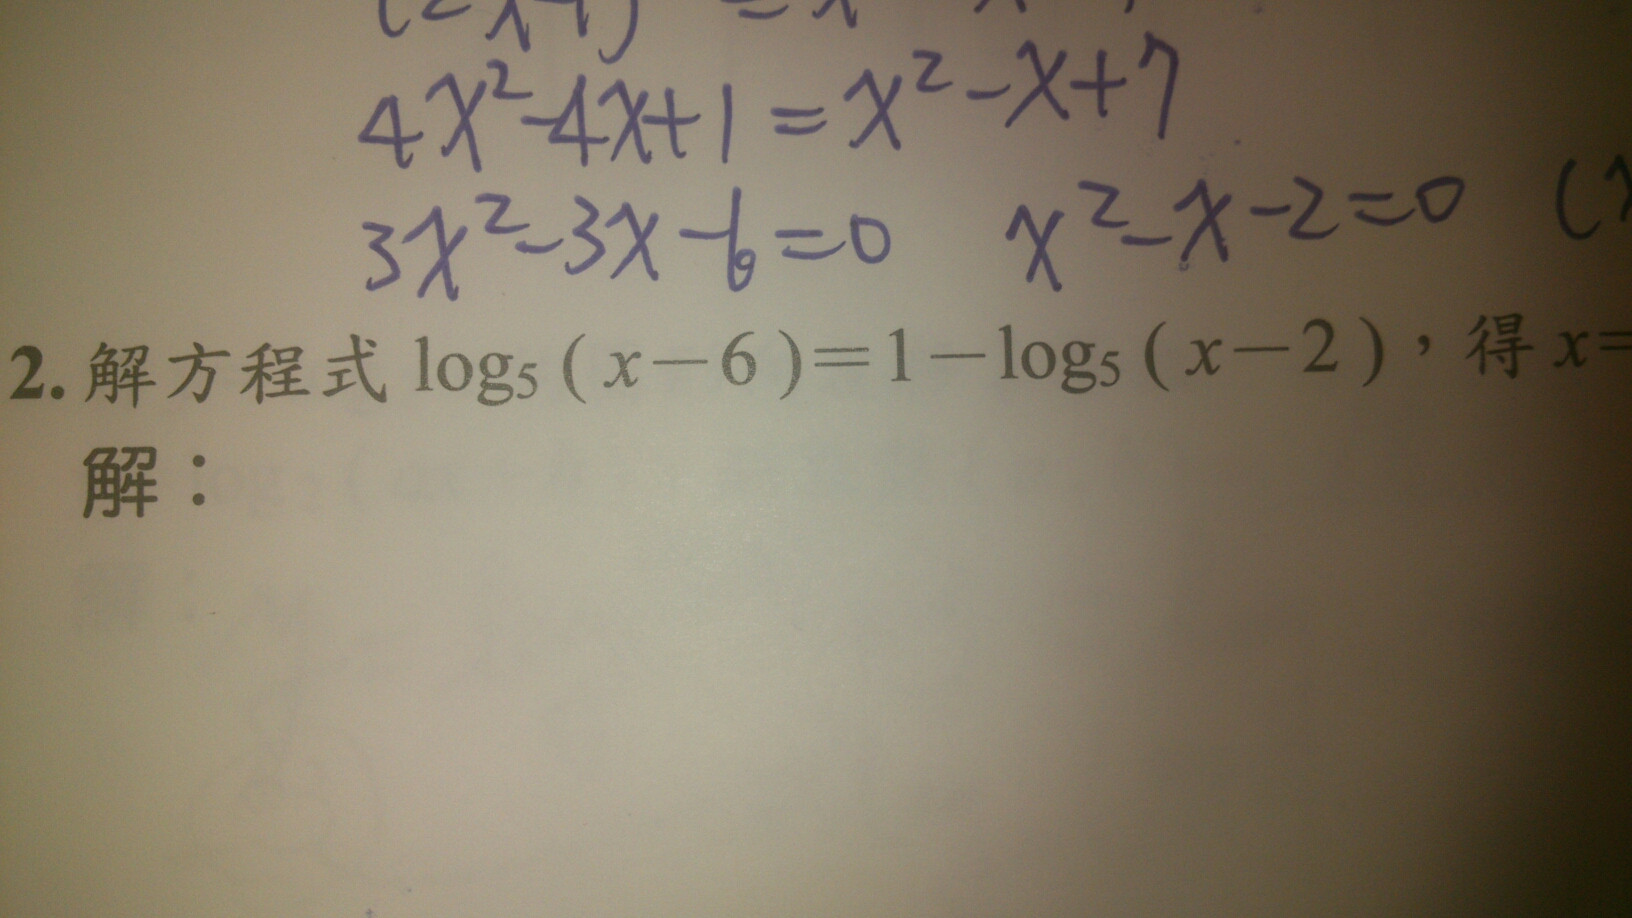 4x²-4x+1=x²-x+7
3x²-3x-6=0 x²-x-2=0 (x
2. 解方程式 log₅(x-6)=1-log₅(x-2)，得 x=
解：